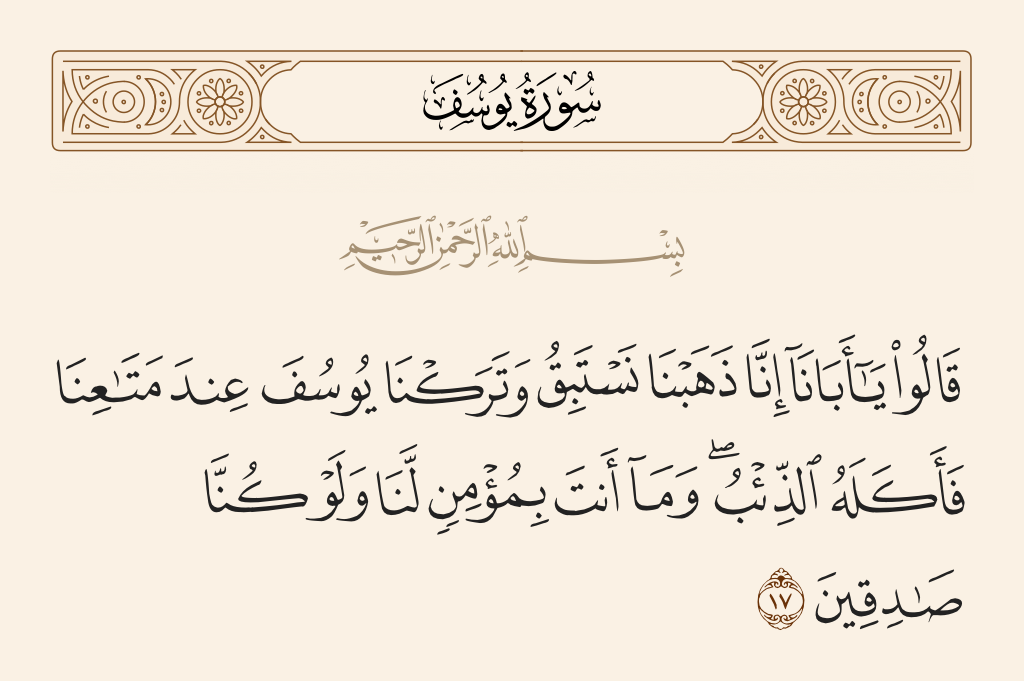 سُورَةُ يُوسُفَ
بِسْمِ ٱللَّهِ ٱلرَّحْمَٰنِ ٱلرَّحِيمِ
قَالُوا۟ يَـٰٓأَبَانَآ إِنَّا ذَهَبْنَا نَسْتَبِقُ وَتَرَكْنَا يُوسُفَ عِندَ مَتَـٰعِنَا
فَأَكَلَهُ ٱلذِّئْبُ ۖ وَمَآ أَنتَ بِمُؤْمِنٍ لَّنَا وَلَوْ كُنَّا
صَـٰدِقِينَ ١٧